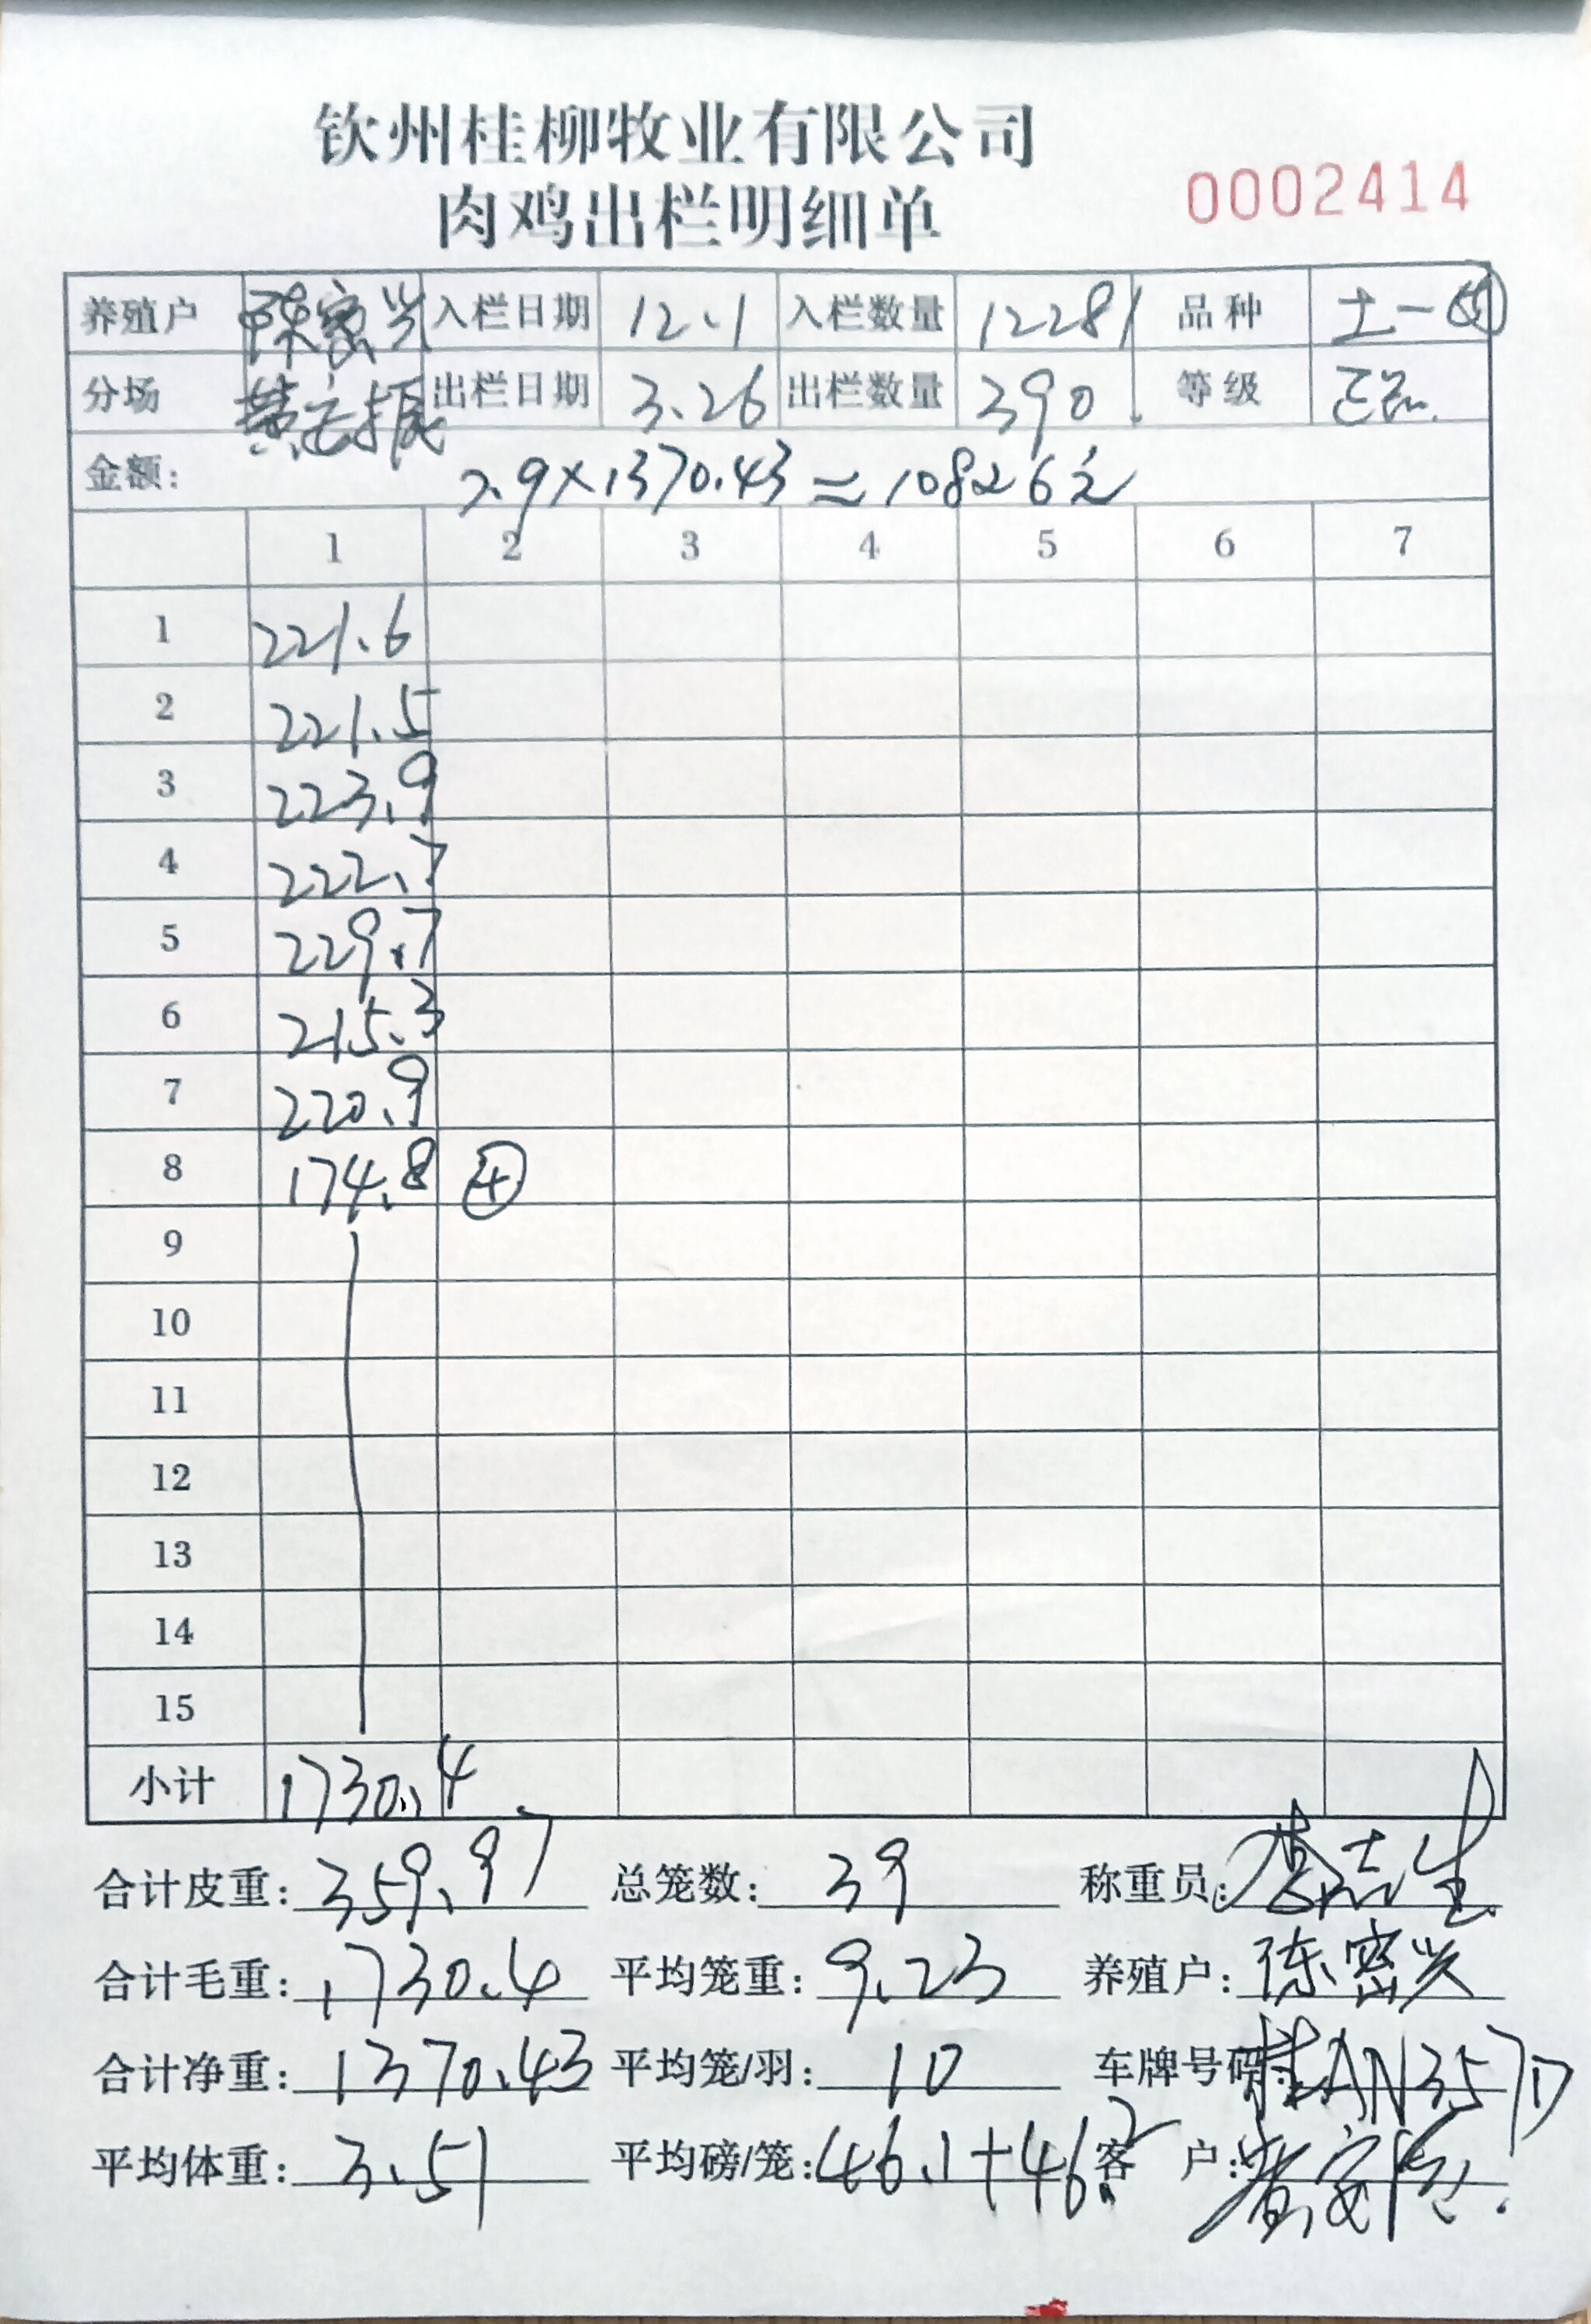 钦州桂柳牧业有限公司
肉鸡出栏明细单
0002414
养殖户 陈密兴 入栏日期 12.1 入栏数量 12281 品种 土一
分场 出栏日期 3.26 出栏数量 390 等级 正品
金额: 7.9×1370.43≈10826元
1 2 3 4 5 6 7
1 221.6
2 221.5
3 223.9
4 222.7
5 229.7
6 215.3
7 220.9
8 174.8 ④
9
10
11
12
13
14
15
小计 1730.4
合计皮重: 359.97 总笼数: 39 称重员: 志生
合计毛重: 1730.4 平均笼重: 9.23 养殖户: 陈密兴
合计净重: 1370.43 平均笼/羽: 10 车牌号码: 桂AN357D
平均体重: 3.51 平均磅/笼: 46.1+46.2 客 户: